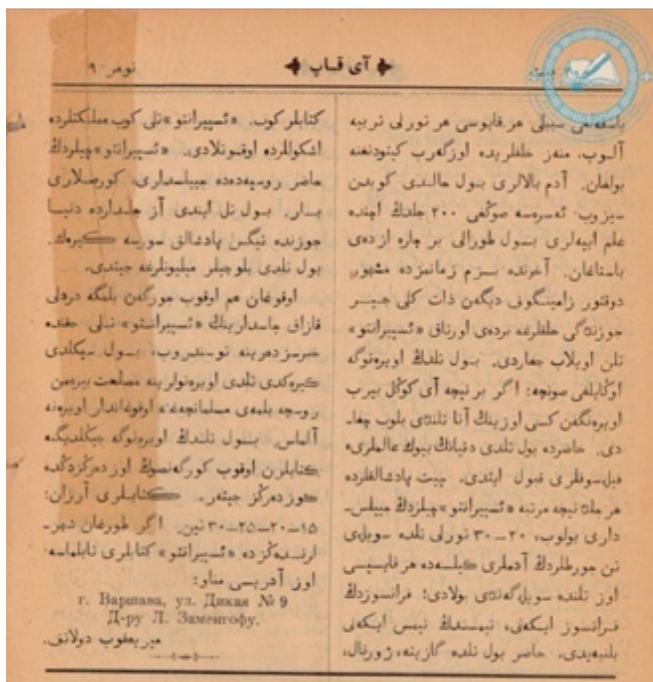 نومر ۹۰ آی قاپ
باسقه‌سی سببلی هر قایوسی هر تورلی تربیه
آلـوب، منه‌ز خلقلریده اوزگه‌رب کیتودنغنه
بولغان. آدم بالالری بـول حالـدی کوبدن
سیزوب ئه‌سره‌سه صوڭغی ۲۰۰ جلدڭ ایچنده
علم ایه‌لری بـول طورالی بر چاره ازده‌ی
باستاغان. آخرنده بـزم زمانمزده مشهور
دوقتور زامینگوفی دیگه‌ن ذات کلی جیـر
جوزنده‌گی خلقلرغه برده‌ی اورتاق «ئسپیرانتو»
تلن اویلاب چغاردی. بـول تلدڭ اویره‌نوگه
اوڭایلغی صونچه: اگر بر نیچه آی کوڭل بیرب
اویره‌نگه‌ن کسی اوزینڭ آنا تلندی بلوب چغا‌ـ
دی. حاضرده بول تلدی دنیانڭ بیوك عالملری،
فیل‌سوفلری قبول ایتدی. چیت پادشالقلرده
هر جلده نیچه مرتبه «ئسپیرانتو» چیلردڭ جییلس‌ـ
داری بولوب، ۲۰ – ۳۰ تورلی تلده سویلی
تن جورطلردڭ آدملری کیلسه‌ده هر قایسیسی
اوز تلنده سویله‌گه‌ندی بولادی؛ فرانسوزدڭ
فـرانسوز ایـکه‌نی، نیمسنڭ نیمس ایـکه‌نی
بلنبه‌یدی. حاضر بول تلده گازیته، ژورنال،
کتابلر کوب. «ئسپیرانتو» تلی کوب مملکتلرده
اشکوللرده اوقـوتلادی. «ئسپیرانتو» چیلردڭ
حاضر روسیه‌ده‌ده جییلسداری، کورصلاری
بـار. بـول تل ایندی آز جلـدارده دنیـا
جوزنده تیگس پادشالق سورسه کـیره‌ك.
بول تلدی بلوچیلر میلیونلرغه جیتدی.
اوقوغان هم اوقوب جورگه‌ن بلمگه دردلی
قازاق جاسدارینڭ «ئسپیرانتو» تیلی حقنده
خبرسزده‌رینه تو‌سـندروب، بـول سیکلدی
کیره‌کدی تلدی اویره‌نولرینه مصلحت بیره‌من
روسچه بلمه‌ی مسلمانچه‌غنه اوقوغاندار اویره‌نه
آلماس. بـول تلندڭ اویره‌نوگه جیڭلدیگنه
کتابلرن اوقوب کورگه‌نسوڭ اوزده‌رڭزدڭده
کوزده‌رڭز جیته‌ر. کتابـلری آرزان:
۱۵–۲۰–۲۵–۳۰ تین. اگر طورغان شهر‌ـ
لرنـده‌ڭزده «ئسپیرانتو» کتابلری تابلماسه
اوز آدریسی مناو:
г. Варшава, ул. Дикая № 9
Д-ру Л. Заменгофу.
میریعقوب دولاتف.